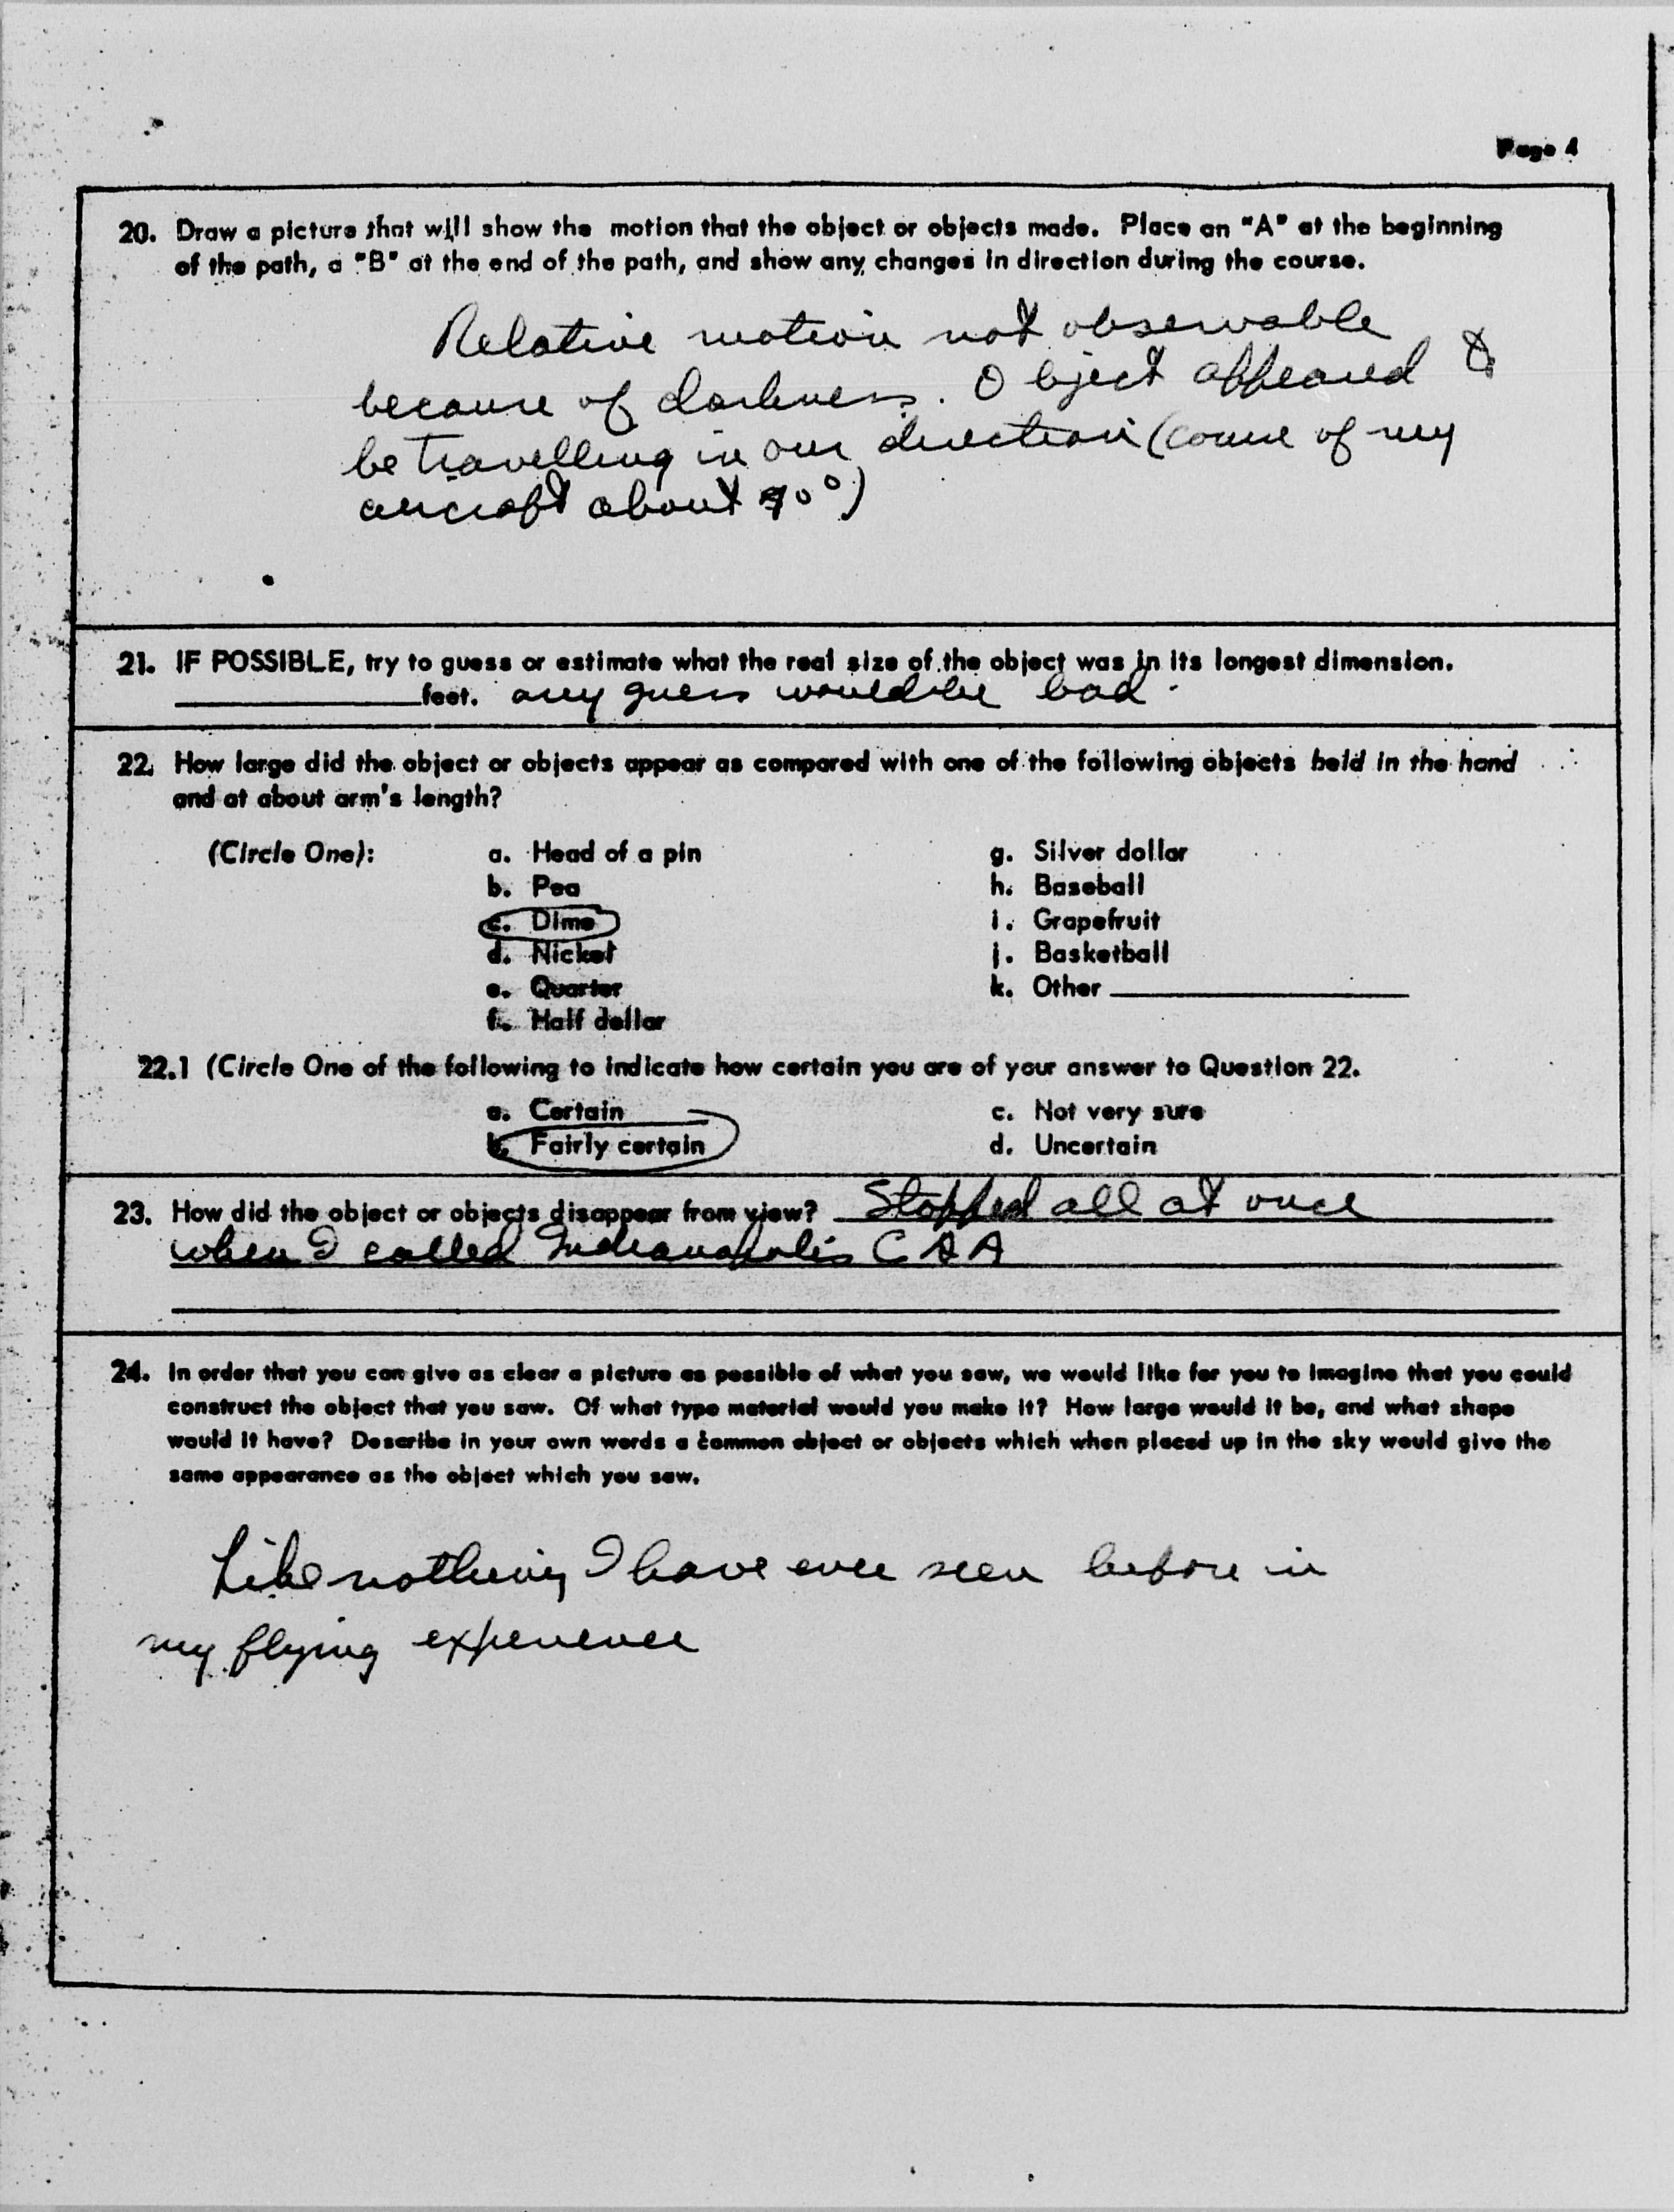 Page 4
20. Draw a picture that will show the motion that the object or objects made. Place an "A" at the beginning
of the path, a "B" at the end of the path, and show any changes in direction during the course.
Relative motion not observable
because of darkness. Object appeared to
be travelling in our direction (course of my
aircraft about 90°)
21. IF POSSIBLE, try to guess or estimate what the real size of the object was in its longest dimension.
____________ feet. any guess would be bad.
22. How large did the object or objects appear as compared with one of the following objects held in the hand
and at about arm's length?
(Circle One): a. Head of a pin g. Silver dollar
b. Pea h. Baseball
c. Dime i. Grapefruit
d. Nickel j. Basketball
e. Quarter k. Other ____________
f. Half dollar
22.1 (Circle One of the following to indicate how certain you are of your answer to Question 22.
a. Certain c. Not very sure
b. Fairly certain d. Uncertain
23. How did the object or objects disappear from view? Stopped all at once
when I called Indianapolis CAA
24. In order that you can give as clear a picture as possible of what you saw, we would like for you to imagine that you could
construct the object that you saw. Of what type material would you make it? How large would it be, and what shape
would it have? Describe in your own words a common object or objects which when placed up in the sky would give the
same appearance as the object which you saw.
Like nothing I have ever seen before in
my flying experience